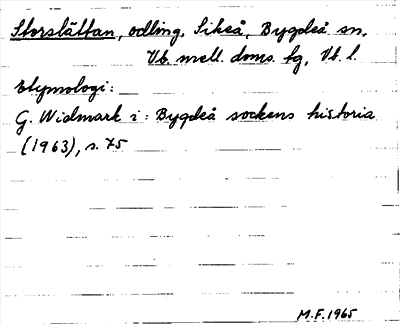 Storslåttan, odling, Sikeå, Bygdeå sn,
Vb. mell. doms. fg, Vb. l.
Etymologi:
G. Widmark i: Bygdeå sockens historia
(1963), s. 75
M.F. 1965